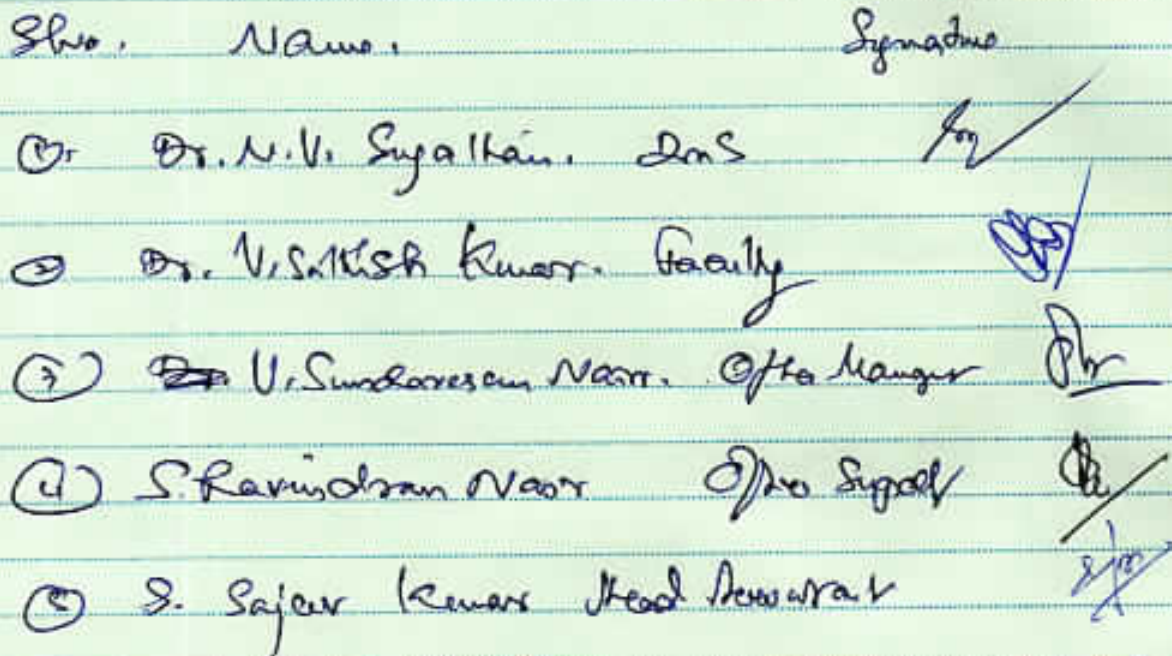 Slno. Name. Signature
1. Dr. N.V. Sugathan. DMS
2 Dr. V. Sathish Kumar. Faculty
3) V. Sundaresan Nair. Office Manager
4) S. Ravindran Nair Office Supdt
5 S. Sajeev Kumar Head Accountant